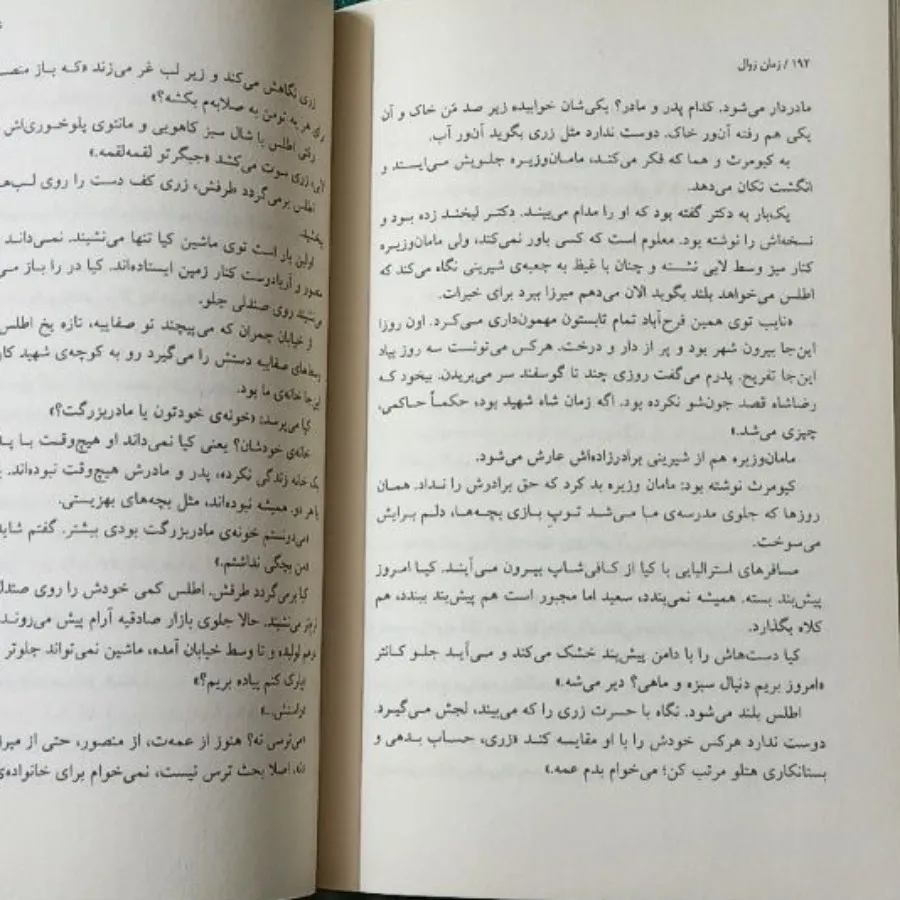 ۱۹۲ / زمان زوال
مادردار می‌شود. کدام پدر و مادر؟ یکی‌شان خوابیده زیر صد مَن خاک و آن
یکی هم رفته آن‌ور خاک. دوست ندارد مثل زری بگوید آن‌ور آب.
به کیومرث و هما که فکر می‌کند، مامان‌وزیره جلویش می‌ایستد و
انگشت تکان می‌دهد.
یک‌بار به دکتر گفته بود که او را مدام می‌بیند. دکتر لبخند زده بود و
نسخه‌اش را نوشته بود. معلوم است که کسی باور نمی‌کند، ولی مامان‌وزیره
کنار میز وسط لابی نشسته و چنان با غیظ به جعبه‌ی شیرینی نگاه می‌کند که
اطلس می‌خواهد بلند بگوید الان می‌دهم میرزا ببرد برای خیرات.
«نایب توی همین فرح‌آباد تمام تابستون مهمون‌داری می‌کرد. اون روزا
این‌جا بیرون شهر بود و پر از دار و درخت. هرکس می‌تونست سه روز بیاد
این‌جا تفریح. پدرم می‌گفت روزی چند تا گوسفند سر می‌بریدن. بیخود که
رضاشاه قصد جون‌شو نکرده بود. اگه زمان شاه شهید بود، حکماً حاکمی،
چیزی می‌شد.»
مامان‌وزیره هم از شیرینی برادرزاده‌اش عارش می‌شود.
کیومرث نوشته بود: مامان وزیره بد کرد که حق برادرش را نداد. همان
روزها که جلوی مدرسه‌ی ما می‌شد توپ بازی بچه‌ها، دلم برایش
می‌سوخت.
مسافرهای استرالیایی با کیا از کافی‌شاپ بیرون می‌آیند. کیا امروز
پیش‌بند بسته. همیشه نمی‌بندد، سعید اما مجبور است هم پیش‌بند ببندد، هم
کلاه بگذارد.
کیا دست‌هاش را با دامن پیش‌بند خشک می‌کند و می‌آید جلو کانتر
«امروز بریم دنبال سبزه و ماهی؟ دیر می‌شه.»
اطلس بلند می‌شود. نگاه با حسرت زری را که می‌بیند، لجش می‌گیرد.
دوست ندارد هرکس خودش را با او مقایسه کند «زری، حساب بدهی و
بستانکاری هتلو مرتب کن؛ می‌خوام بدم عمه.»
زری نگاهش می‌کند و زیر لب غر می‌زند «که باز منصـ
هر یه تومن به صلابه‌م بکشه؟»
وقتی اطلس با شال سبز کاهویی و مانتوی پلوخوری‌اش
زری سوت می‌کشد «جیگرتو لقمه‌لقمه.»
اطلس برمی‌گردد طرفش، زری کف دست را روی لب‌هـ
اولین بار است توی ماشین کیا تنها می‌نشیند. نمی‌داند
و آریادوست کنار زمین ایستاده‌اند. کیا در را باز مـی
روی صندلی جلو.
از خیابان چمران که می‌پیچند تو صفاییه، تازه یخ اطلس
صفاییه دستش را می‌گیرد رو به کوچه‌ی شهید کار
خانه‌ی ما بود.
کیا می‌پرسد: «خونه‌ی خودتون یا مادربزرگت؟»
خانه‌ی خودشان؟ یعنی کیا نمی‌داند او هیچ‌وقت با پد
یک خانه زندگی نکرده، پدر و مادرش هیچ‌وقت نبوده‌اند.
هر دو. همیشه نبوده‌اند، مثل بچه‌های بهزیستی.
«می‌دونستم خونه‌ی مادربزرگت بودی بیشتر. گفتم شاید
«من بچگی نداشتم.»
کیا برمی‌گردد طرفش. اطلس کمی خودش را روی صندل
می‌نشیند. حالا جلوی بازار صادقیه آرام پیش می‌روند
و تا وسط خیابان آمده، ماشین نمی‌تواند جلوتر
پارک کنم پیاده بریم؟»
«می‌ترسی نه؟ هنوز از عمه‌ت، از منصور، حتی از میرز
«نه. اصلا بحث ترس نیست، نمی‌خوام برای خانواده‌ی